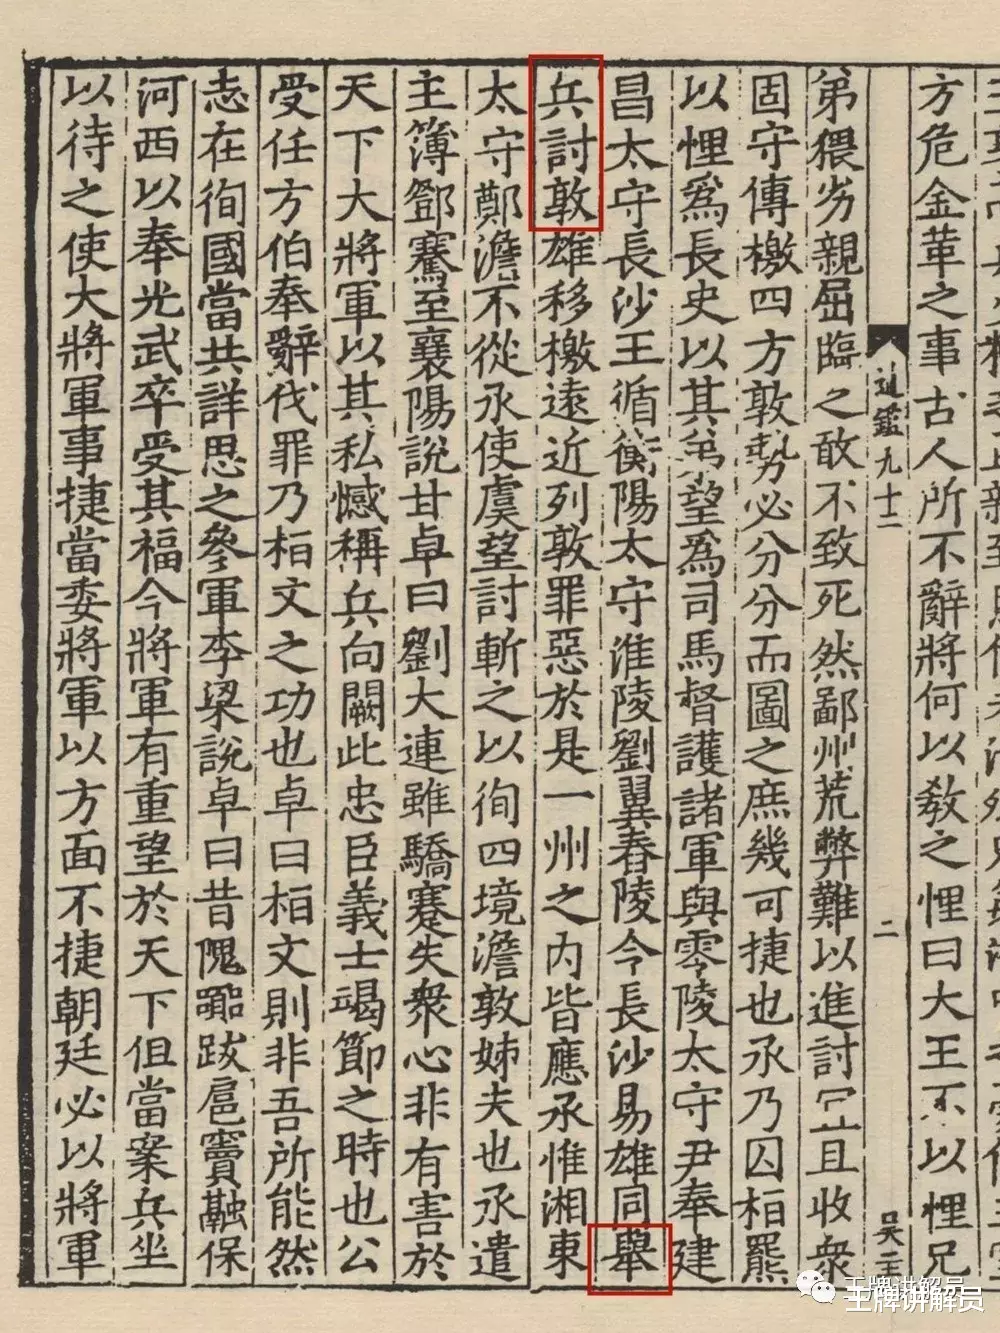 方危金革之事古人所不辭將何以教之悝曰大王不以悝兄
通鑑九十二
二
弟猥劣親屈臨之敢不致死然鄙州荒弊難以進討宜且收衆
固守傳檄四方敦勢必分分而圖之庶幾可捷也承乃囚桓羆
以悝爲長史以其弟望爲司馬督護諸軍與零陵太守尹奉建
昌太守長沙王循衡陽太守淮陵劉翼舂陵令長沙易雄同舉
兵討敦雄移檄遠近列敦罪惡於是一州之內皆應承惟湘東
太守鄭澹不從承使虞望討斬之以徇四境澹敦姊夫也承遣
主簿鄧騫至襄陽說甘卓曰劉大連雖驕蹇失衆心非有害於
天下大將軍以其私憾稱兵向闕此忠臣義士竭節之時也公
受任方伯奉辭伐罪乃桓文之功也卓曰桓文則非吾所能然
志在徇國當共詳思之參軍李梁說卓曰昔隗囂跋扈竇融保
河西以奉光武卒受其福今將軍有重望於天下但當案兵坐
以待之使大將軍事捷當委將軍以方面不捷朝廷必以將軍
王牌讲解员
王牌讲解员